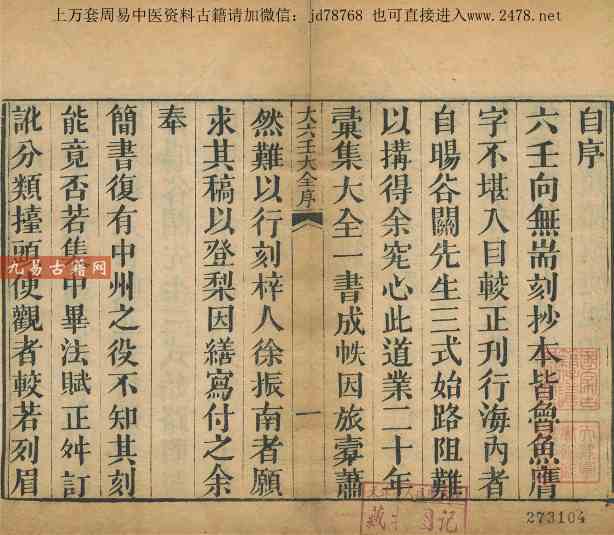 上万套周易中医资料古籍请加微信：jd78768 也可直接进入www.2478.net
自序
六壬向無耑刻抄本皆魯魚膺
字不堪入目較正刊行海內者
自暘谷關先生三式始路阻難
以搆得余究心此道業二十年
彚集大全一書成帙因旅囊蕭
大六壬大全序
一
然難以行刻梓人徐振南者願
求其稿以登梨因繕寫付之余
奉
簡書復有中州之役不知其刻
能竟否若集中畢法賦正舛訂
訛分類擡頭使觀者較若列眉
九易古籍网
273104